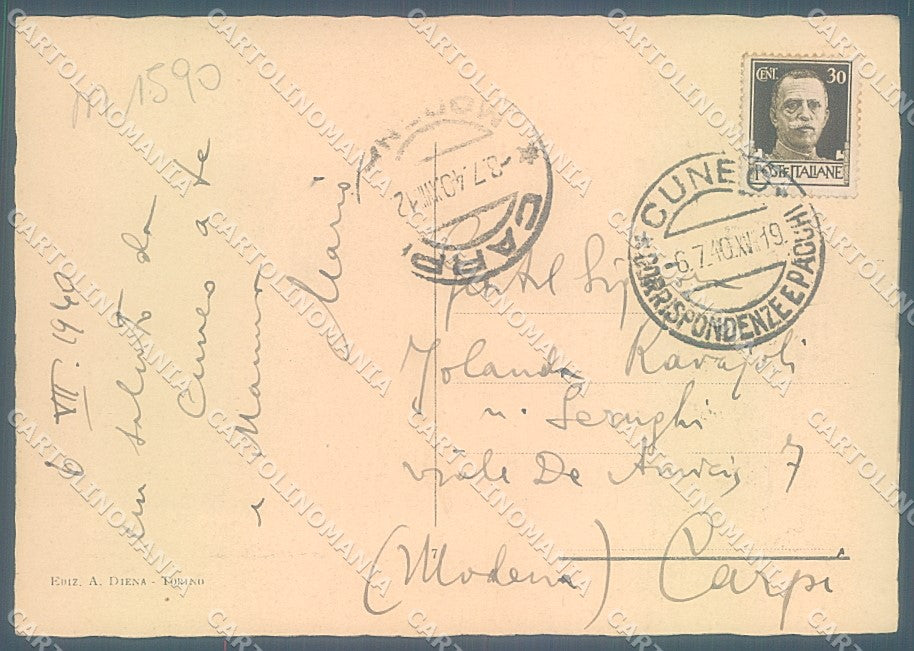 N 1590
6 VII. 1940
Un saluto da
Cuneo a te
e Mamma
Mario
EDIZ. A. DIENA - TORINO
CENT. 30
POSTE ITALIANE
CUNEO
6.7.40.XVIII 19
CORRISPONDENZE E PACCHI
CARPI
-8.7.40.XVIII 12
Gentil Sig
Jolanda
n.
viale De Amicis 7
(Modena) Carpi
CARTOLINOMANIA